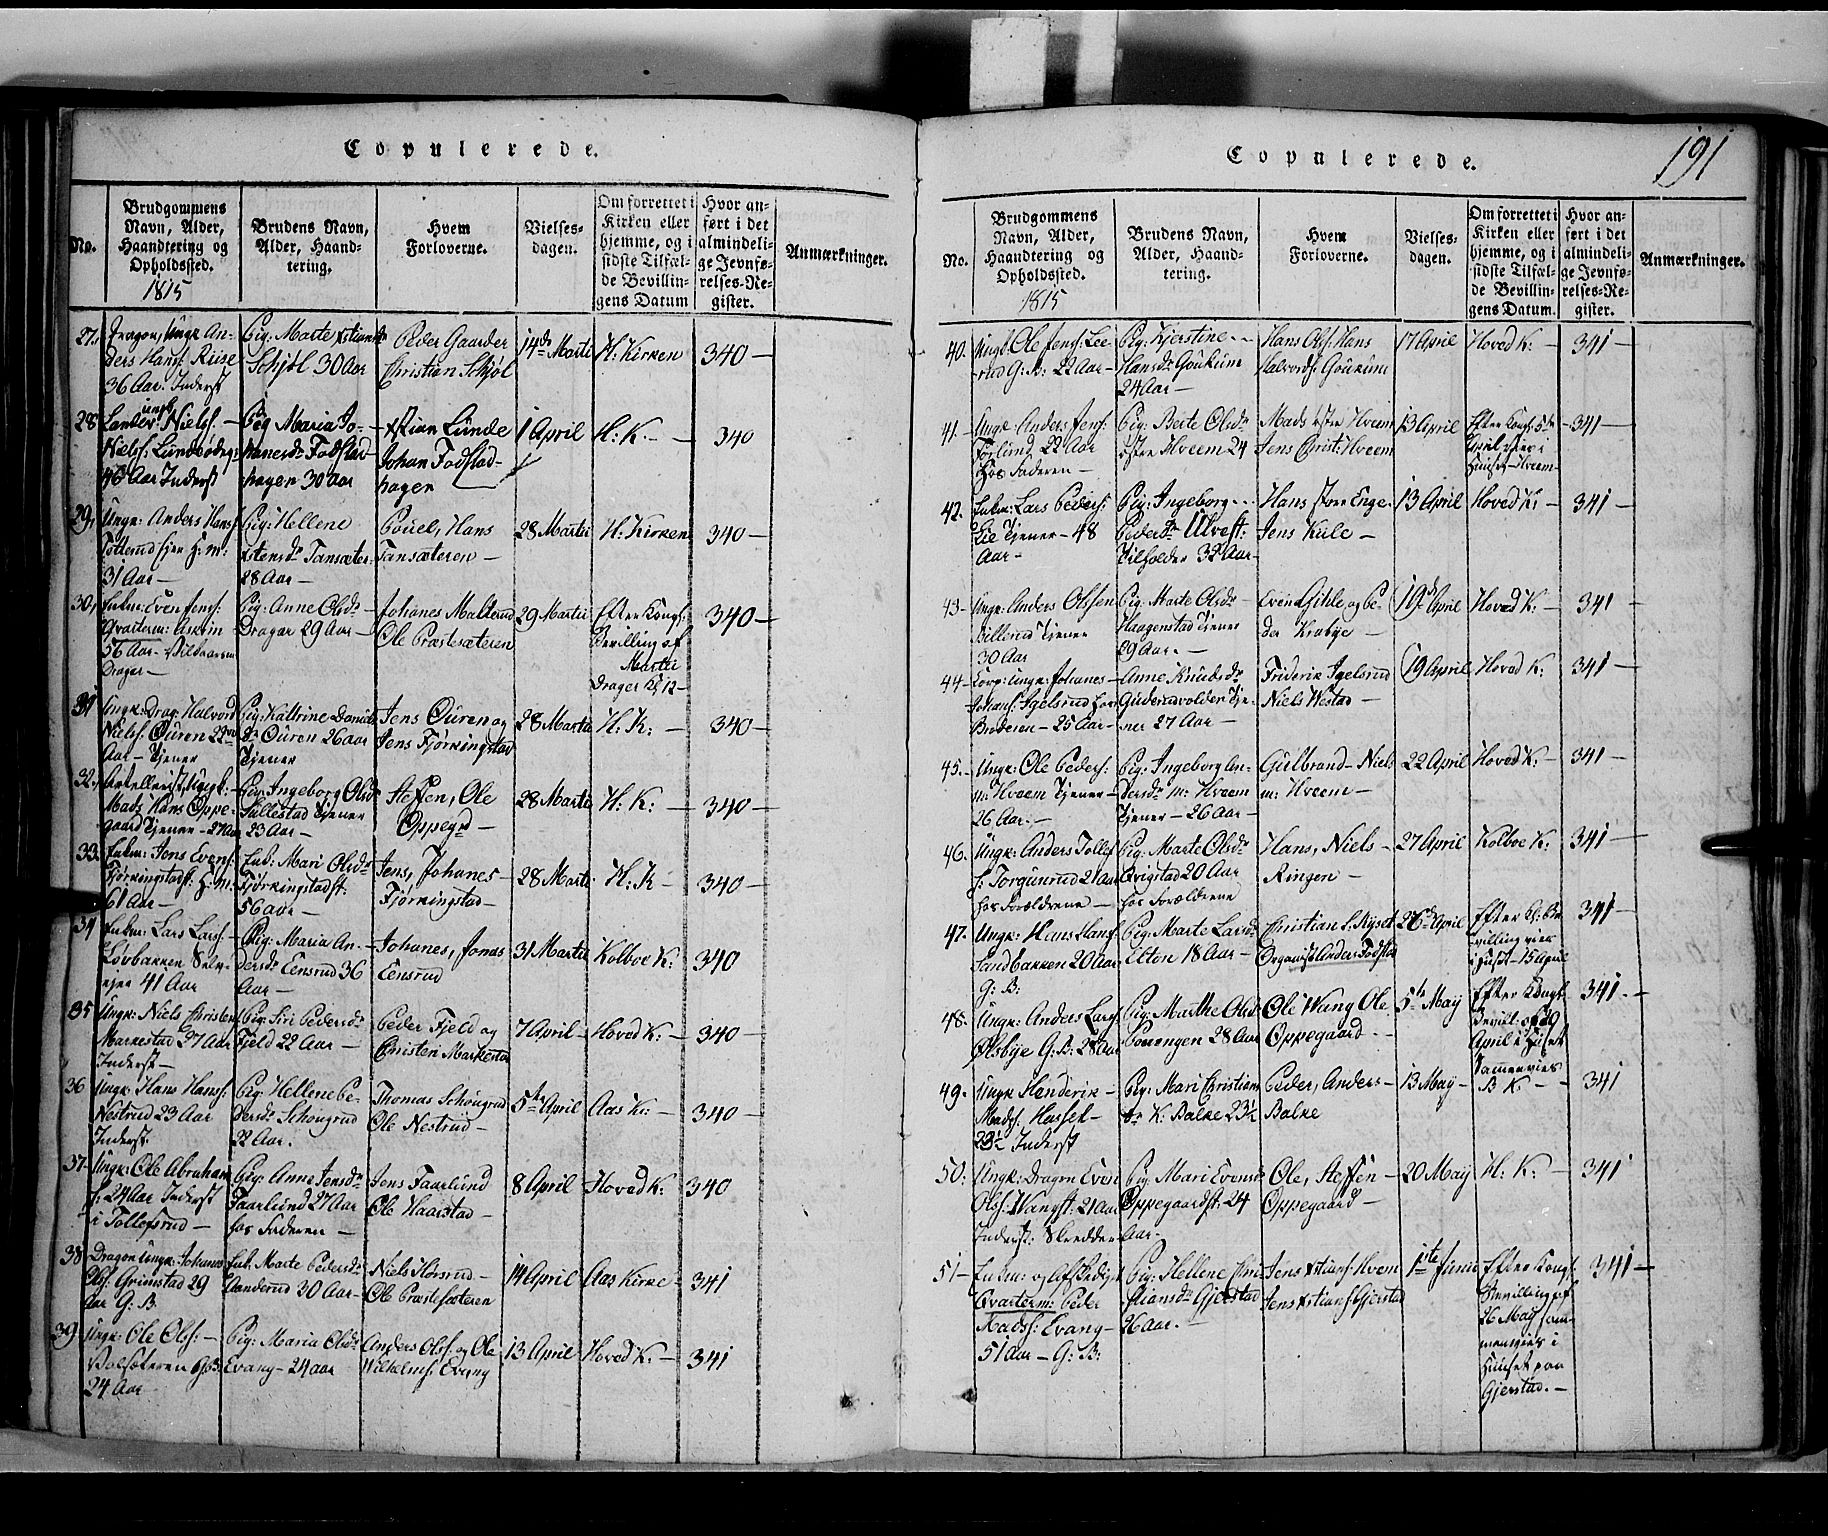 Copulerede.
No.
Brudgommens Navn, Alder, Haandtering og Opholdssted.
1815
Brudens Navn, Alder, Haandtering.
Hvem Forloverne.
Vielsesdagen.
Om forrettet i Kirken eller hjemme, og i sidste Tilfælde Bevillingens Datum
Hvor anført i det almindelige Jevnførelses-Register.
Anmærkninger.
27. Dragon, Ungk: Anders Hans: Ruse 36 Aar. Inderst
Pig: Marte Schjøl 30 Aar
Peder Gaarder Christian Schjøl
14de Martii
H: Kirken
340 —
28 Nielss: — Nielss: 46 Aar Inderst
Pig Maria Johanesdr Fodstadhagen 30 Aar
Xstian Lunde Johan Fodstadhagen
1 April
H: K: —
340
29, Ungk: Anders Hans: 31 Aar —
Pig: Hellene Tansæter 28 Aar —
Pouel, Hans Tansæteren —
28 Martii
H: Kirken
340 —
30, Enkm: Even Jens: Qvarterm: 56 Aar. Drager —
Pig: Anne Olsdr Drager 29 Aar —
Johanes Ole Præstesæteren
29 Martii
Efter Kongs: Bevilling af Martii Drager
340 —
31 Ungk: Drag: Halvord Nielss: Ouren Aar — Tjener
Pig: Kattrine Ouren 26 aar Tjener
Jens Ouren og Jens Fjørkingstad
28 Martii
H: K: —
340 —
32, Mads Hans Oppegaard Tjener — 27 Aar
Pig: Ingeborg Olsd Tjener 23 Aar —
Steffen, Ole Oppegrd —
28 Martii
H: K: —
340 —
33. Enkm: Jens Evens: Fjørkingstad 61 Aar —
Enk: Mari Olsdr Fjørkingstad 56 aar —
Jens, Johanes — Fjørkingstad —
28 Martii
H: K —
340 —
34 Enkm: Lars Larss: — Løvbakken 41 Aar
Pig: Maria Andersdr Eensrud 36 Aar —
Johanes, Jonas Eensrud
31 Martii
Kolboe K:
340
35 Ungk: Niels Christen Markestad 27 Aar Inderst —
Pig: Siri Pedersdr Fjeld 22 Aar —
Peder Fjeld og Christen Markestad
7 April —
Hoved K: —
340 —
36 Ungk: Hans Hanss: Nestrud 23 Aar Inderst.
Pig: Hellene Pedersdr Schougrud 22 Aar.
Thomas Schougrud Ole Nestrud —
5te April
Aas K: —
340 —
37 Ungk: Ole Abraham s: 24 Aar Inderst i Tollefsrud —
Pig: Anne Jensdr Faarlund 27 Aar hos Faderen —
Jens Faarlund Ole Haarstad —
8 April
Hoved K: —
340
38 Dragon Ungk: Johanes Ols: Grimstad 29 Aar G: B
Enk: Marte Pedersdr 30 Aar —
Niels Hørsrud — Ole Præstesæteren
14 April
Aas Kirke —
341
39 Ungk: Ole Olss: — 24 Aar —
Pig: Maria Olsdr Evang — 24 aar
Anders Olss: og Ole Wilhelms: Evang
13 April
Hoved K: —
341
Copulerede.
191
No.
Brudgommens Navn, Alder, Haandtering og Opholdssted.
1815
Brudens Navn, Alder, Haandtering.
Hvem Forloverne.
Vielsesdagen.
Om forrettet i Kirken eller hjemme, og i sidste Tilfælde Bevillingens Datum.
Hvor anført i det almindelige Jevnførelses-Register.
Anmærkninger.
40. Ungk: Ole Jens: G: B: 22 Aar —
Pig: Kjerstine Hansdr Goukum 24 Aar —
Hans Ols: Hans Halvords: Goukum
17 April
Hoved K: —
341 —
41 — Ungk: Anders Jens: 22 Aar hos Faderen —
Pig: Berte Olsdr Hveem 24
Mads Hveem Jens Christ: Hveem
13 April
Efter Kongs: i Huset — Hveem
341 —
42. Enkm: Lars Peders: Lie Tjener — 48 Aar —
Pig: Ingeborg Pedersdr 32 Aar —
Hans store Enge Jens Kule —
13 April
Hoved K: —
341 —
43 — Ungk: Anders Olssen Billerud Tjener 30 Aar
Pig: Marte Olsdr Haagenstad Tjener 29 Aar. —
Even og Peder Krabye —
19de April
Hoved K: —
341 —
44 — Ungk: Johanes — Johans: Igelsrud hos Broderen — 25 Aar —
Anne Knudsdr Tjener 27 Aar —
Friderik Igelsrud Niels Westad —
19 April
Hoved K:
341 —
45. — Ungk: Ole Peders: m: Hveem Tjener — 26 Aar. —
Pig: Ingeborg Andersdr m: Hveem Tjener — 26 Aar —
Gulbrand — Niels m: Hveem —
22 April
Hoved K: —
341 —
46. Ungk: Anders Tollefs: Torgunrud 21 Aar hos Forældrene —
Pig: Marte Olsdr Qvigstad 20 Aar hos Forældrene
Hans, Niels — Ringen —
27 April
Kolboe K:
341 —
47. Ungk: Hans Hans: Sandbakken 20 Aar G: B:
Pig: Marte Larsdr Elton 18 Aar —
Christian S. Ryset Organist Anders Fodstad
26de April
Efter K: Bevilling vies i Huset — 15 April
341 —
48. Ungk: Anders Lars: Ølsbye G: B: 28 Aar
Pig: Marthe Olsd 28 Aar
Ole Wang Ole Oppegaard —
5te May
Efter Kongl: Bevill: af 29 April i Huset Sammenvies
341. —
49. Ungk Henderik — Mads: Hassel — 23½ Inderst
Pig: Mari Christiansdr K: Balke 23½
Peder, Anders — Balke
13 May —
B K —
341
50: Ungk: Dragon Even Ols: Wang 21 Aar Inderst: Skredder
Pig: Mari Evensd Oppegaard 24 Aar.
Ole, Steffen — Oppegaard —
20 May
H: K: —
341
51 — Enkm: og Afskediget Qvarterm: Peder Madss: Evang — 51 Aar — G: B:
Pig: Hellene Christiansdr Gjerstad 26 Aar. —
Jens Xstians: Hveem Jens Xstians: Gjerstad
1ste Junii
Efter Kongl: Bevilling af 26 May sammenvies i Huset paa Gjerstad. —
341 —